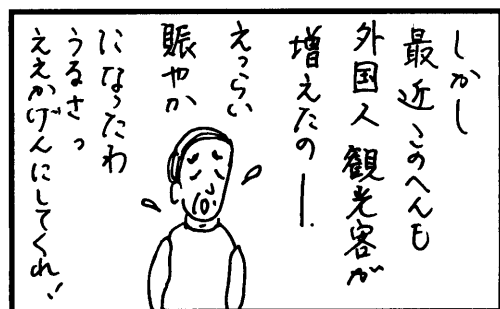 しかし
最近このへんも
外国人観光客が
増えたのー。
えっらい
賑やか
になったわ
うるさっ
ええかげんにしてくれ!